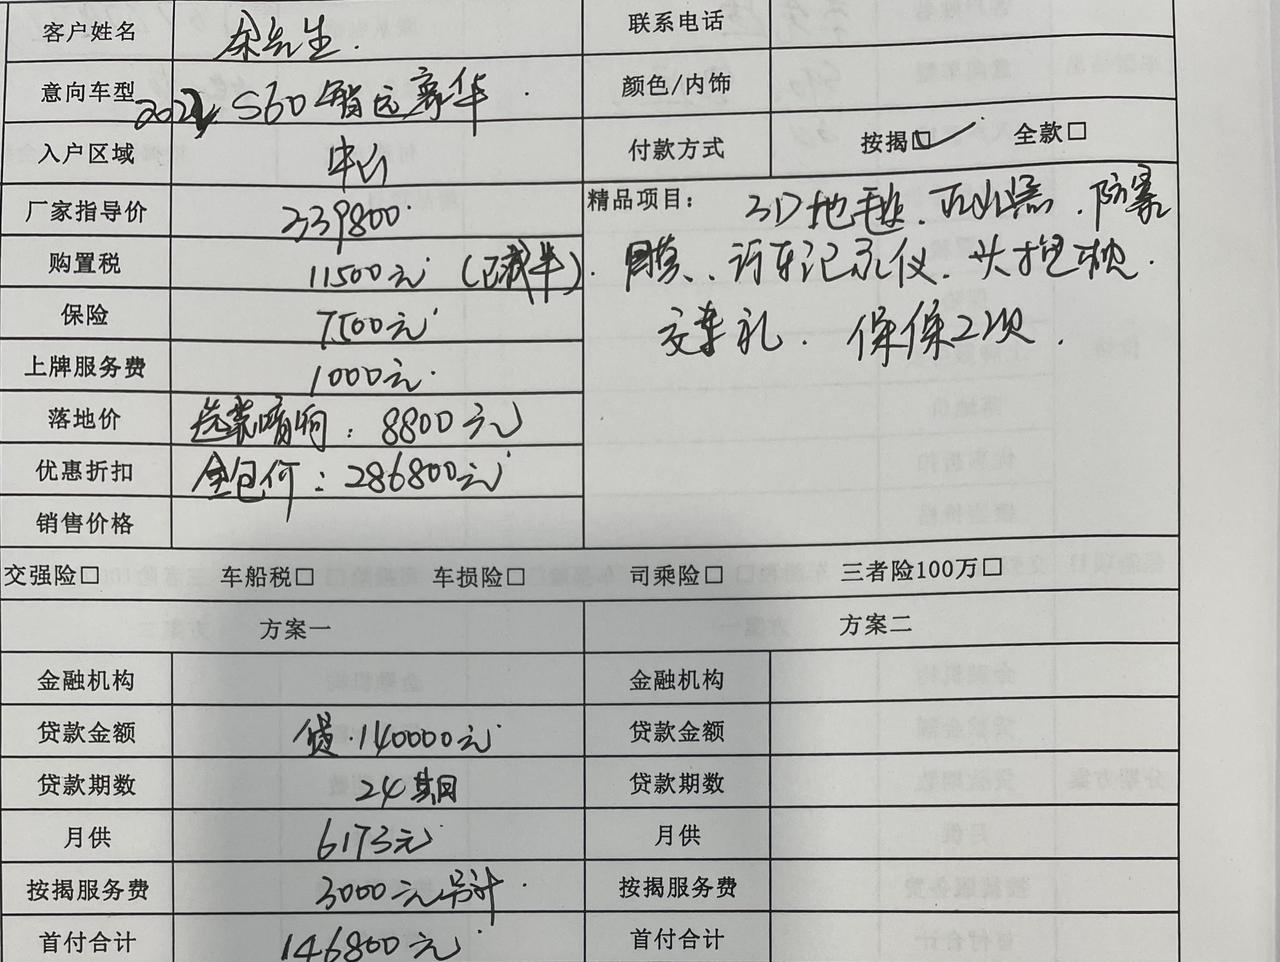 客户姓名 余先生. 联系电话
意向车型 2022 S60 智远豪华 颜色/内饰
入户区域 中山 付款方式 按揭☑ 全款□
厂家指导价 339800 精品项目: 3D地毡. 灭火器. 防暴
购置税 11500元 (已减半). 行车记录仪. 头枕.
保险 7500元 交车礼. 保保2次.
上牌服务费 1000元
落地价 选装喇叭: 8800元
优惠折扣 全包价: 286800元
销售价格
交强险□ 车船税□ 车损险□ 司乘险□ 三者险100万□
方案一 方案二
金融机构 金融机构
贷款金额 贷.140000元 贷款金额
贷款期数 24期 贷款期数
月供 6173元 月供
按揭服务费 3000元另计 按揭服务费
首付合计 146800元 首付合计